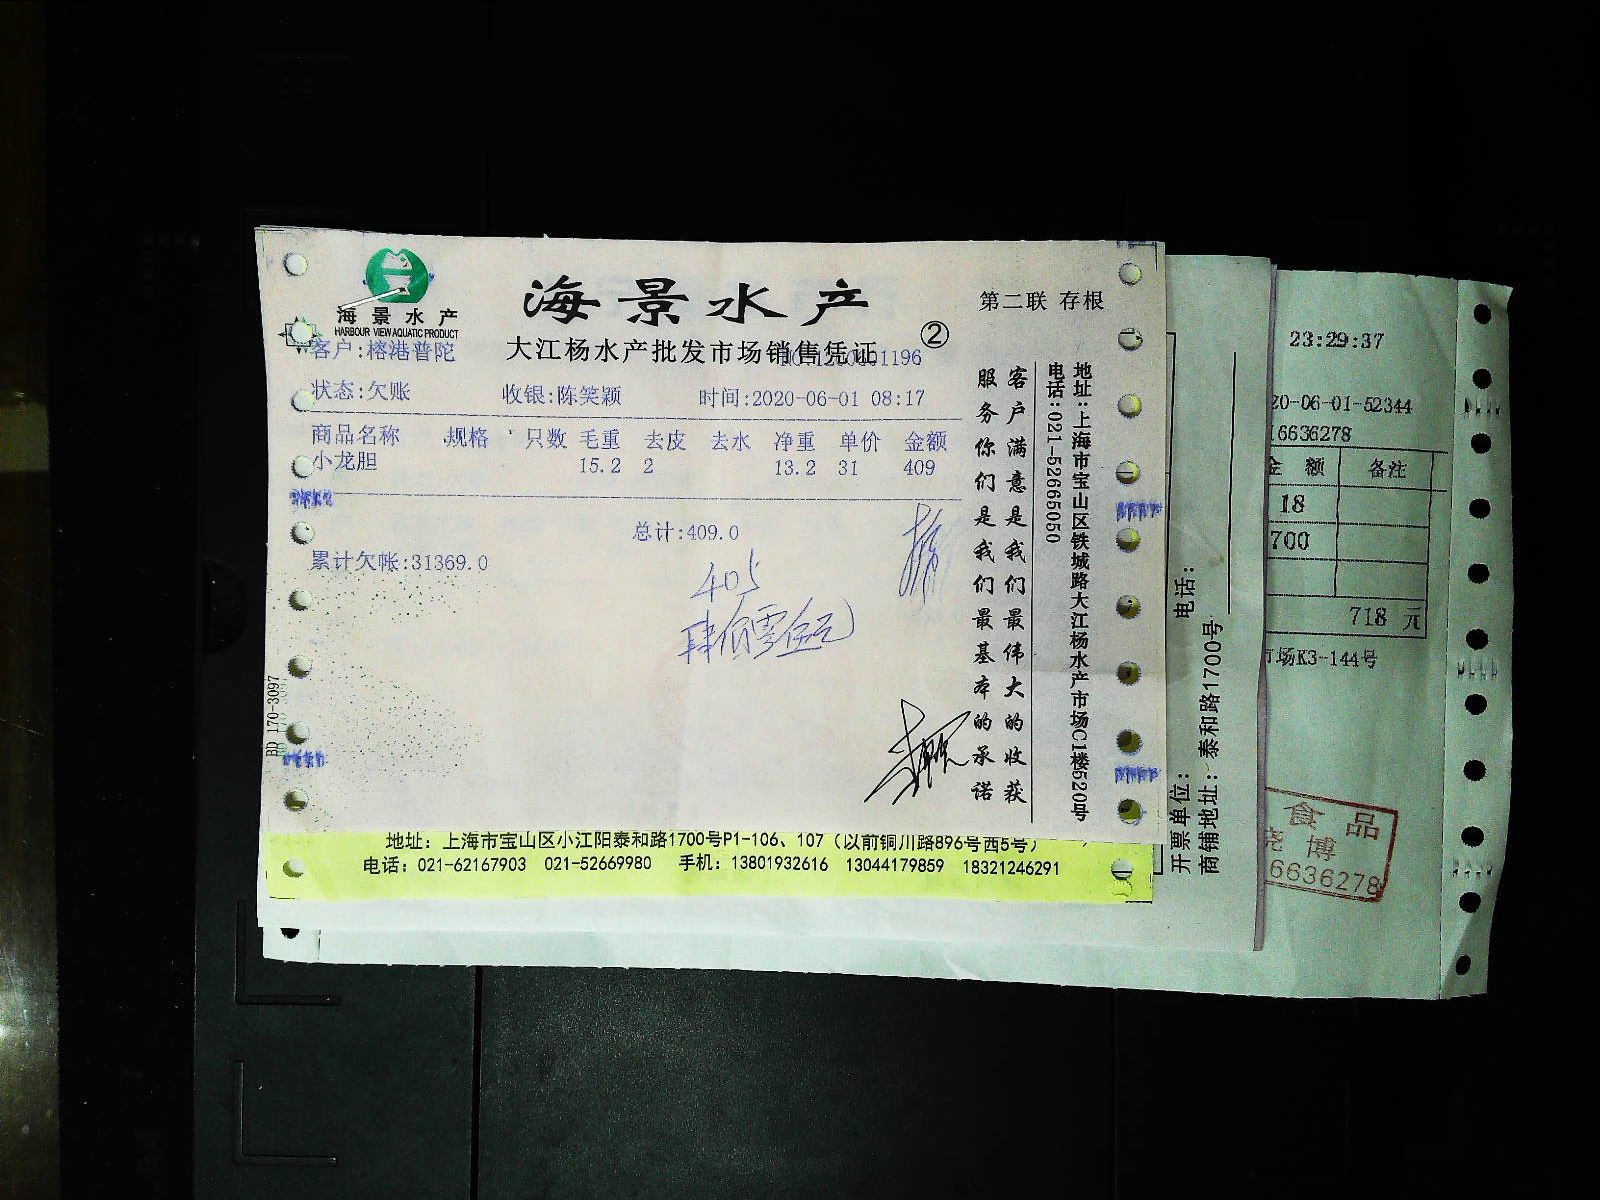 海景水产
HARBOUR VIEW AQUATIC PRODUCT
海景水产
第二联 存根
大江杨水产批发市场销售凭证
②
客户:榕港普陀
状态:欠账 收银:陈笑颖 时间:2020-06-01 08:17
商品名称 规格 只数 毛重 去皮 去水 净重 单价 金额
小龙胆 15.2 2 13.2 31 409
总计:409.0
累计欠帐:31369.0
405
肆佰零伍元
客户满意是我们最伟大的收获
服务你们是我们最基本的承诺
地址:上海市宝山区铁城路大江杨水产市场C1楼520号
电话:021-52665050
BD 170-3097
地址：上海市宝山区小江阳泰和路1700号P1-106、107（以前铜川路896号西5号）
电话：021-62167903 021-52669980 手机：13801932616 13044179859 18321246291
电话：
开票单位：
商铺地址：泰和路1700号
23:29:37
20-06-01-52344
16636278
金 额 备注
18
700
718 元
市场K3-144号
食品
晓博
6636278